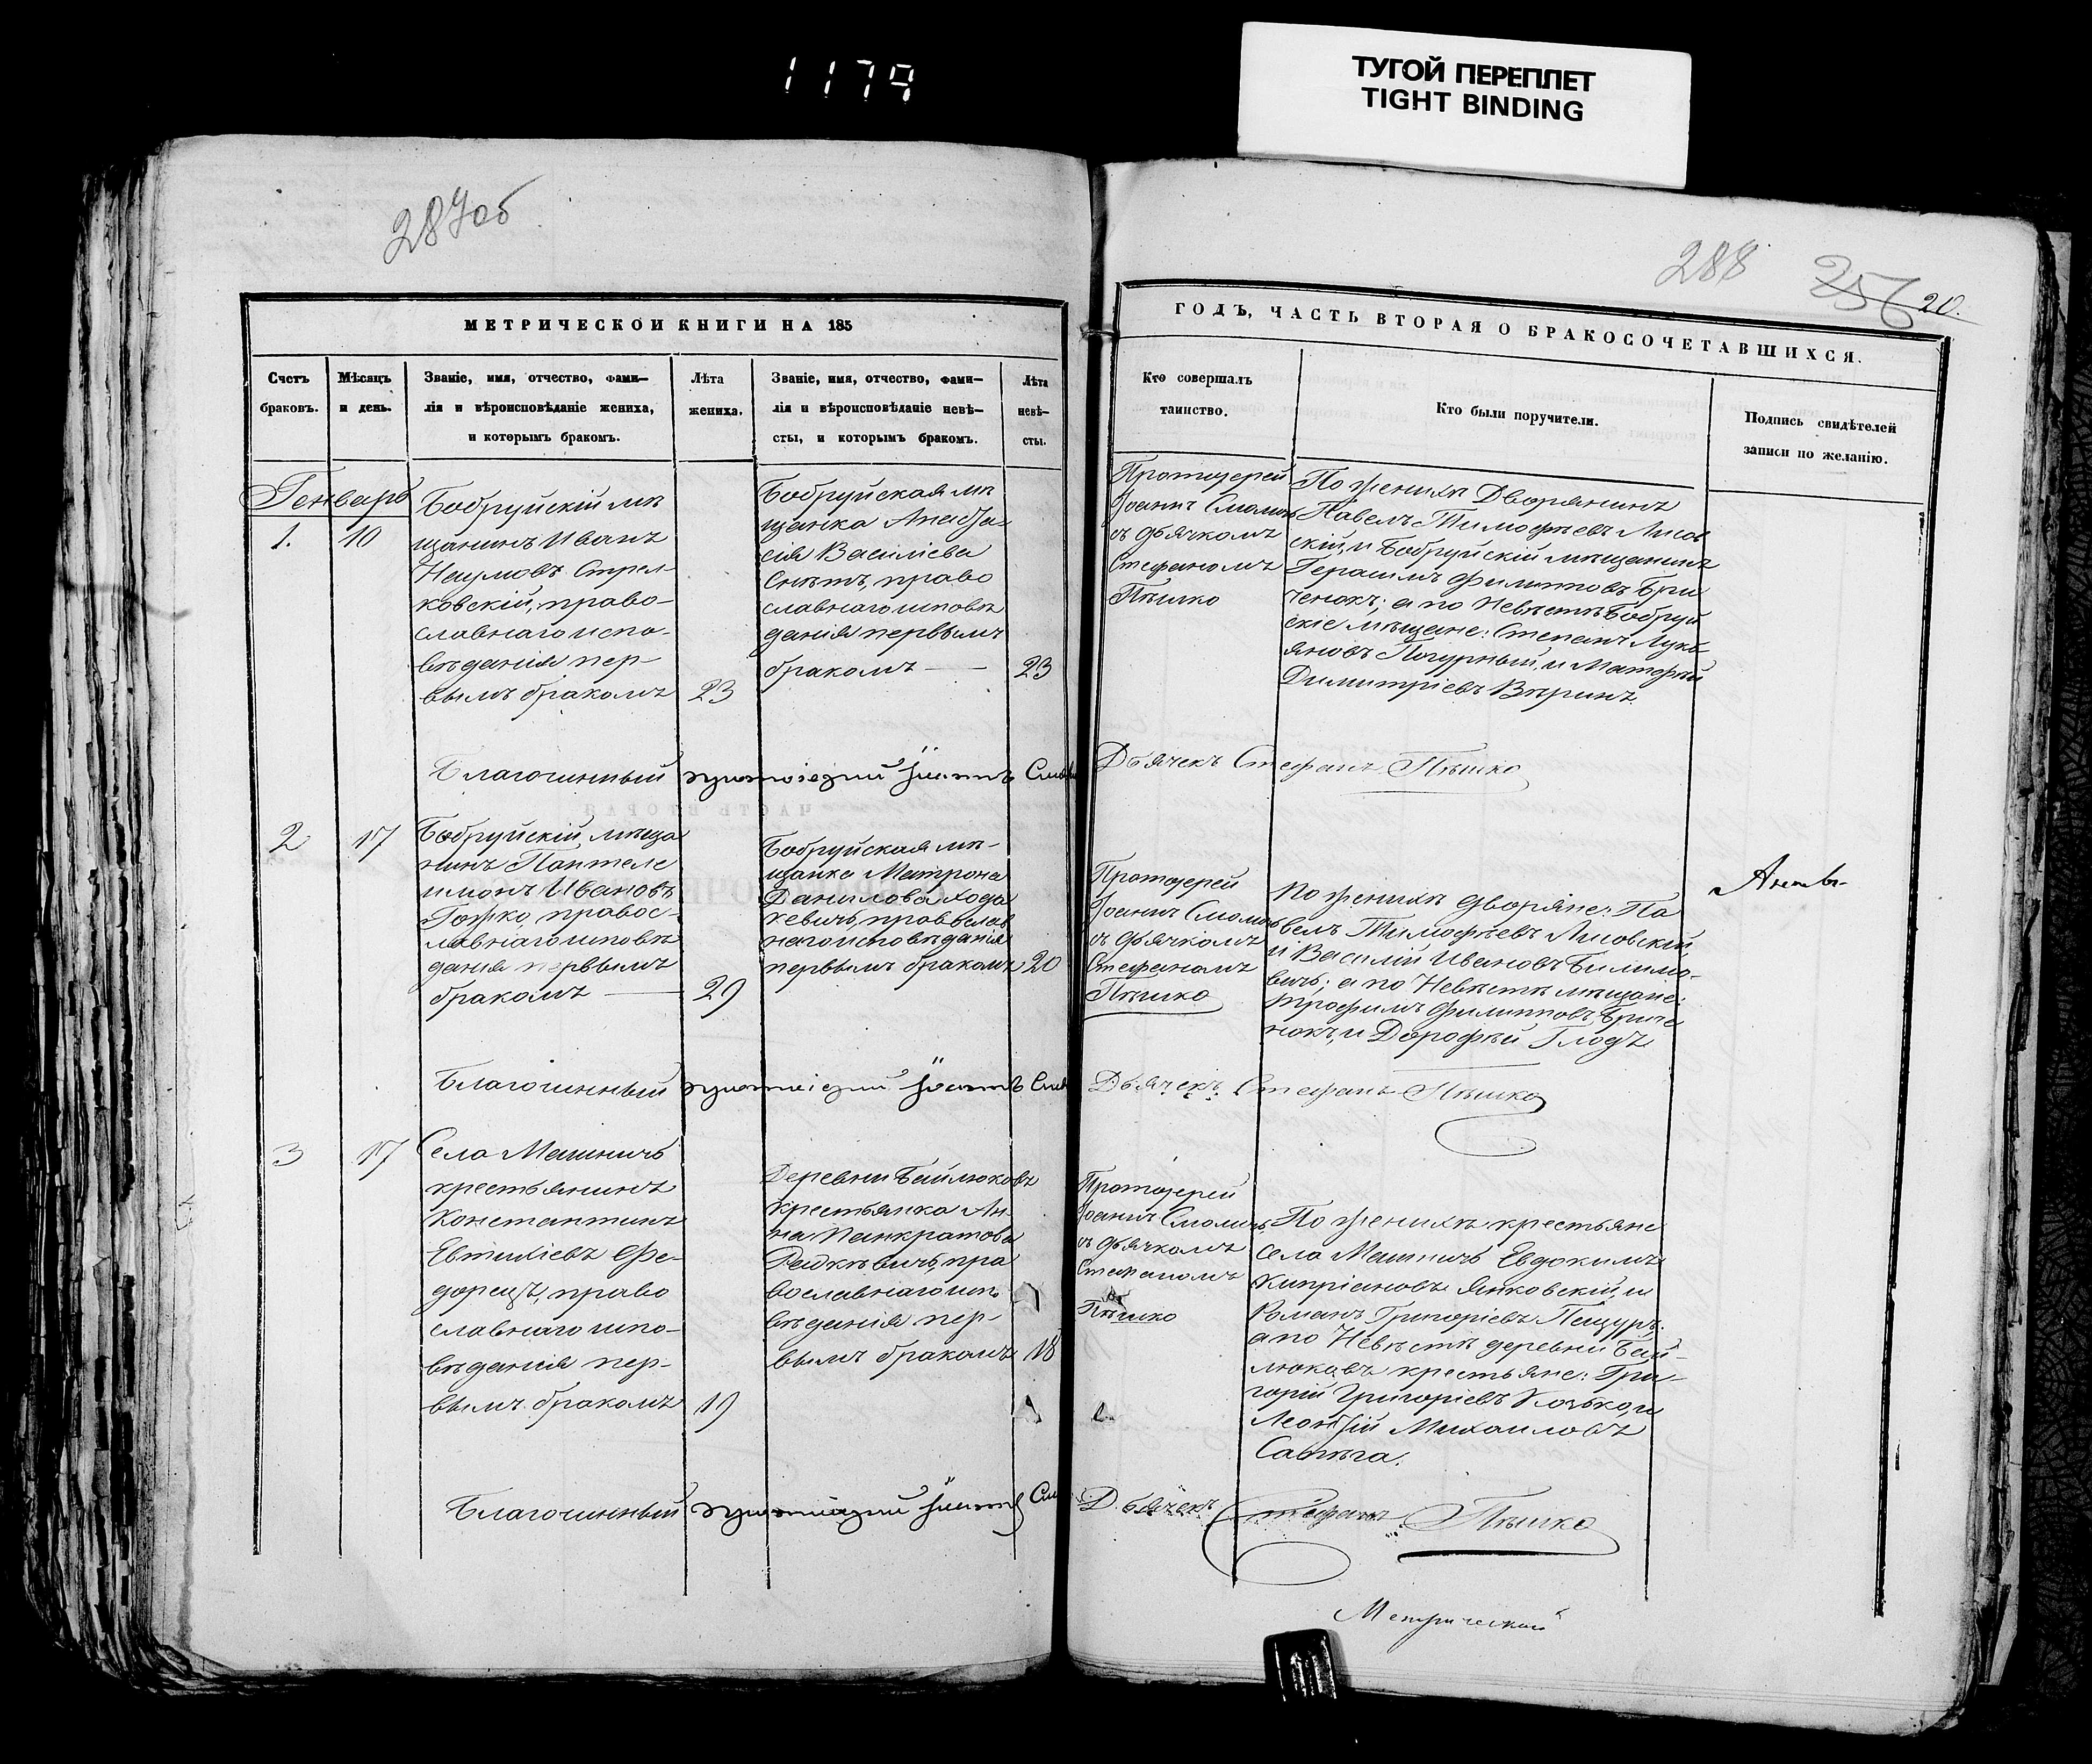 1179
ТУГОЙ ПЕРЕПЛЕТ
TIGHT BINDING
287об
288
256
20.
МЕТРИЧЕСКОЙ КНИГИ НА 185
Счетъ
браковъ.
Мѣсяцъ
и день.
Званіе, имя, отчество, фами—
лія и вѣроисповѣданіе жениха,
и которымъ бракомъ.
Лѣта
жениха.
Званіе, имя, отчество, фами—
лія и вѣроисповѣданіе невѣ—
сты, и которымъ бракомъ.
Лѣта
невѣ—
сты.
ГОДЪ, ЧАСТЬ ВТОРАЯ О БРАКОСОЧЕТАВШИХСЯ.
Кто совершалъ
таинство.
Кто были поручители.
Подпись свидѣтелей
записи по желанію.
Генварь
1.
10
Бобруйскій мѣ
щанинъ Иванъ
Наумовъ Стрел-
ковскій, право-
славнаго испо-
вѣданія пер-
вымъ бракомъ
23
Бобруйская мѣ
щанка Анаста-
сія Василіева
Снѣтъ, право
славнаго исповѣ
данія первымъ
бракомъ —
23
Протоіерей
Іоаннъ Смоличъ
съ дьячкомъ
Стефаномъ
Пѣшко
По женихѣ Дворянинъ
Павелъ Тимофѣевъ Лисов
скій, и Бобруйскій мѣщанинъ
Герасимъ Филипповъ Бри
ченокъ; а по Невѣстѣ Бобруй
скіе мѣщане: Степанъ Лукь
яновъ Погурный, и Матфѣй
Димитріевъ Вѣринъ.
Благочинный протоіерей Іоаннъ
Дьячекъ Стефанъ Пѣшко
2
17
Бобруйскій мѣща
нинъ Пантеле
имонъ Ивановъ
правос-
лавнаго исповѣ
данія первымъ
бракомъ —
29
Бобруйская мѣ-
щанка Матрона
Данилова Хода
кевичъ, православ
наго исповѣданія
первымъ бракомъ
20
Протоіерей
Іоаннъ Смоличъ
съ дьячкомъ
Стефаномъ
Пѣшко
По женихѣ дворяне: Па
велъ Тимофѣевъ Лисовскій,
и Василій Ивановъ Билимо-
вичъ; а по Невѣстѣ мѣщане:
Трофимъ Филипповъ Бриче
нокъ, и Дорофѣй Глодъ
Благочинный протоіерей Іоаннъ
Дьячекъ Стефанъ Пѣшко
3
17
Села
крестьянинъ
Константинъ
Евтихіевъ Фе-
дорецъ, право
славнаго испо-
вѣданія пер-
вымъ бракомъ
19
Деревни Байлюковъ
крестьянка Ан-
на Панкратова
пра
вославнаго испо
вѣданія пер-
вымъ бракомъ
18
Протоіерей
Іоаннъ Смоличъ
съ дьячкомъ
Стефаномъ
Пѣшко
По женихѣ крестьяне
села Евдокимъ
Кипріановъ Янковскій, и
Романъ Григоріевъ
а по Невѣстѣ деревни Бай-
люковъ крестьяне: Гри-
горій Григоріевъ и
Леонтій Михаиловъ
Сапѣга.
Благочинный протоіерей Іоаннъ
Дьячекъ Стефанъ Пѣшко
Метрической